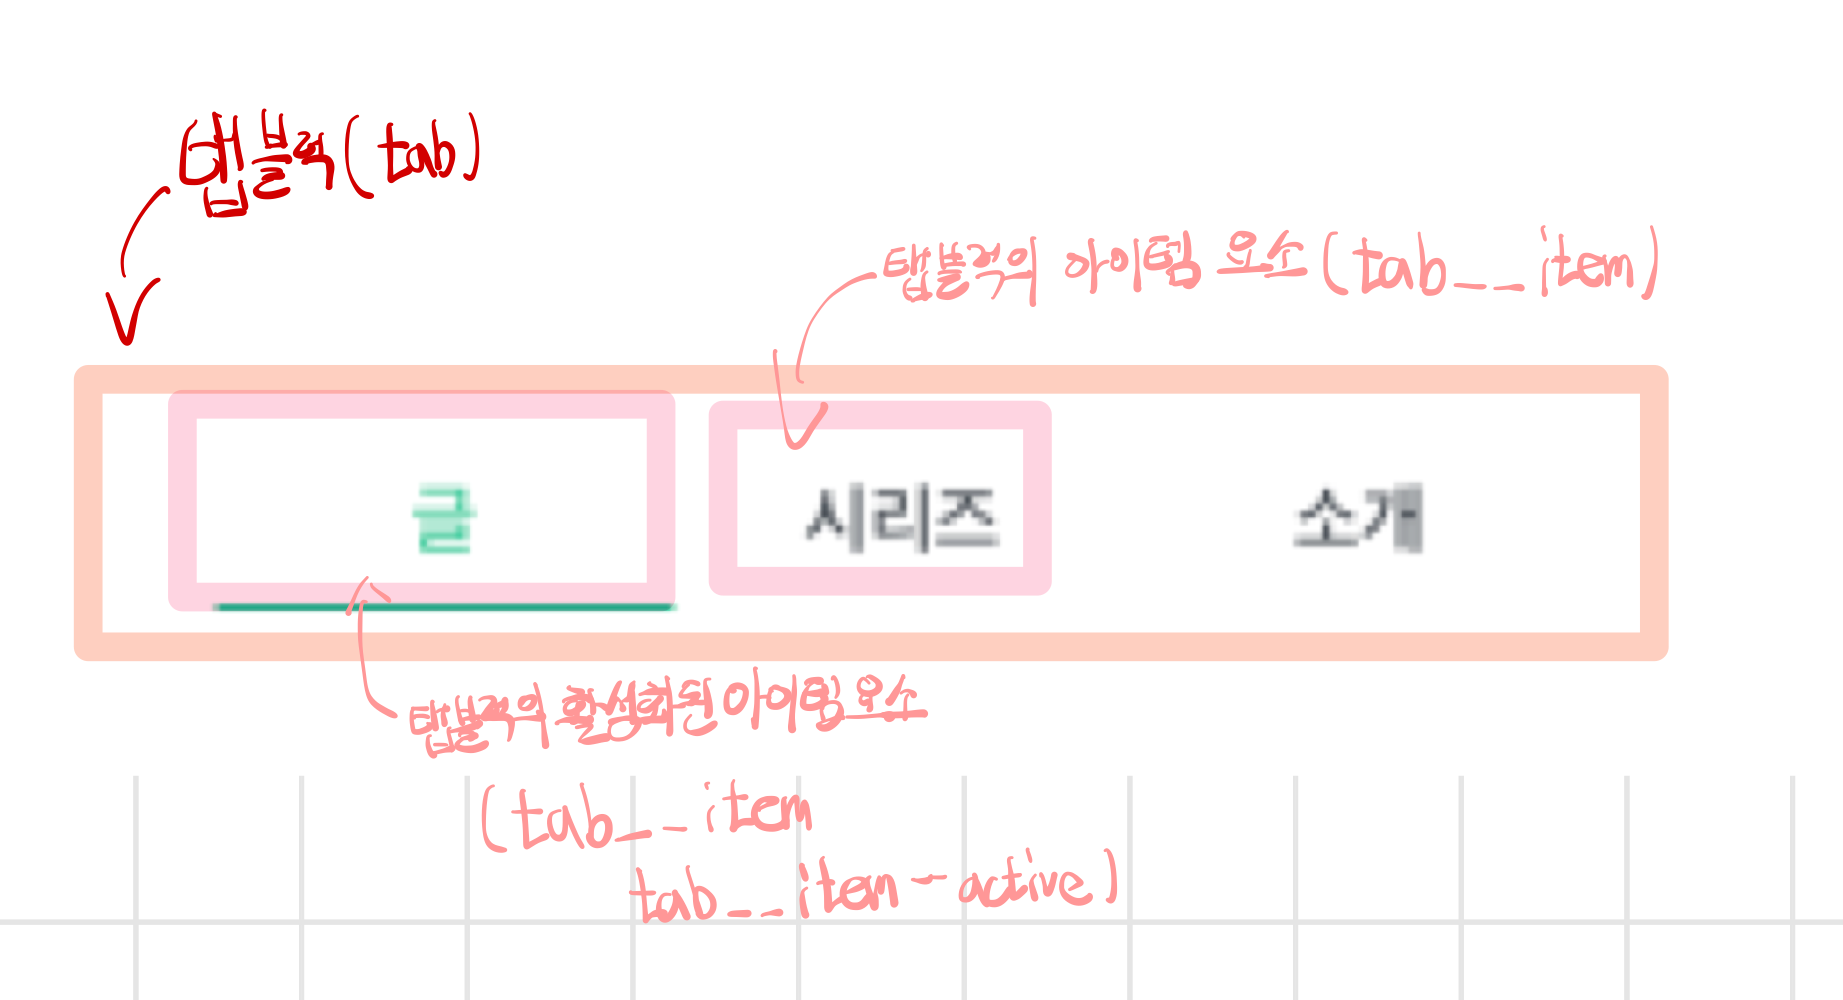 탭블럭(tab)
탭블럭의 아이템 요소(tab__item)
글 시리즈 소개
탭블럭의 활성화된 아이템 요소
(tab__item
tab__item-active)